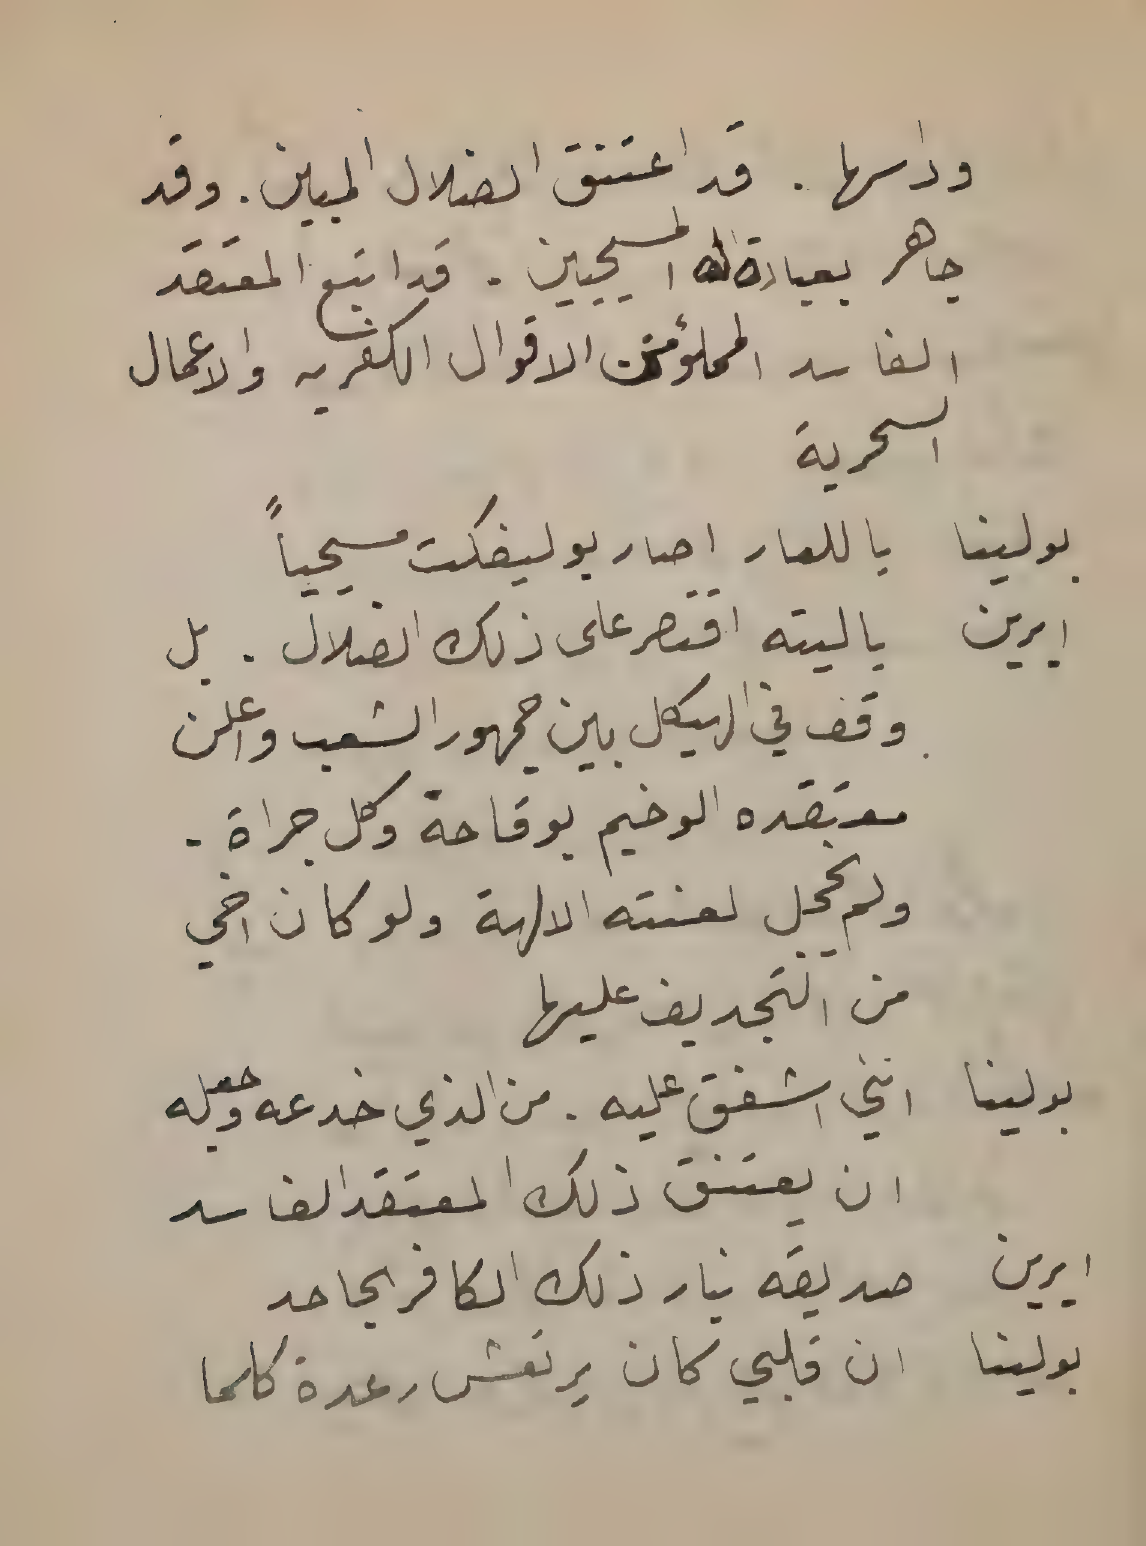 وداسها . قد اعتنق الضلال المبين . وقد
جاهر بعبادة اله المسيحيين . قد اتبع المعتقد
الفاسد المملؤ من الاقوال الكفريه والاعمال
السحرية
بولينا يا للعار اصار بوليفكت مسيحياً
ايرين ياليته اقتصر على ذلك الضلال . بل
وقف في الهيكل بين جمهور الشعب واعلن
معتقده الوخيم بوقاحة وكل جراة .
ولم يخجل لعنته الالهة ولو كان اخي
من التجديف عليها
بولينا انني اشفق عليه . من الذي خدعه وجعله
ان يعتنق ذلك المعتقد الفاسد
ايرين صديقه نيار ذلك الكافر الجاحد
بولينا ان قلبي كان يرتعش رعدة كلما